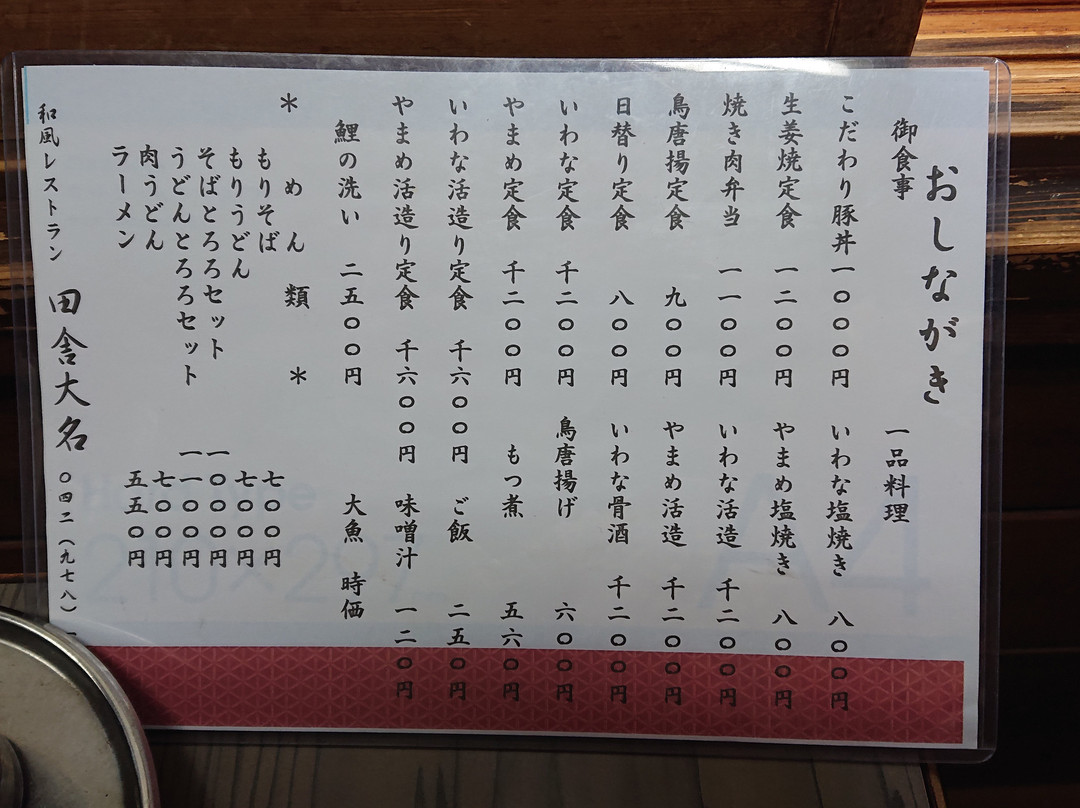 おしながき
御食事　一品料理
こだわり豚丼 一〇〇〇円　いわな塩焼き 八〇〇円
生姜焼定食 一二〇〇円　やまめ塩焼き 八〇〇円
焼き肉弁当 一一〇〇円　いわな活造 千二〇〇円
鳥唐揚定食 九〇〇円　やまめ活造 千二〇〇円
日替り定食 八〇〇円　いわな骨酒 千二〇〇円
いわな定食 千二〇〇円　鳥唐揚げ 六〇〇円
やまめ定食 千二〇〇円　もつ煮 五六〇円
いわな活造り定食 千六〇〇円　ご飯 二五〇円
やまめ活造り定食 千六〇〇円　味噌汁 一二〇円
鯉の洗い 二五〇〇円　大魚 時価
＊ めん類 ＊
もりそば 七〇〇円
もりうどん 七〇〇円
そばとろろセット 一〇〇〇円
うどんとろろセット 一一〇〇円
肉うどん 七〇〇円
ラーメン 五五〇円
和風レストラン 田舎大名 〇四二（九七八）
A4
210×297